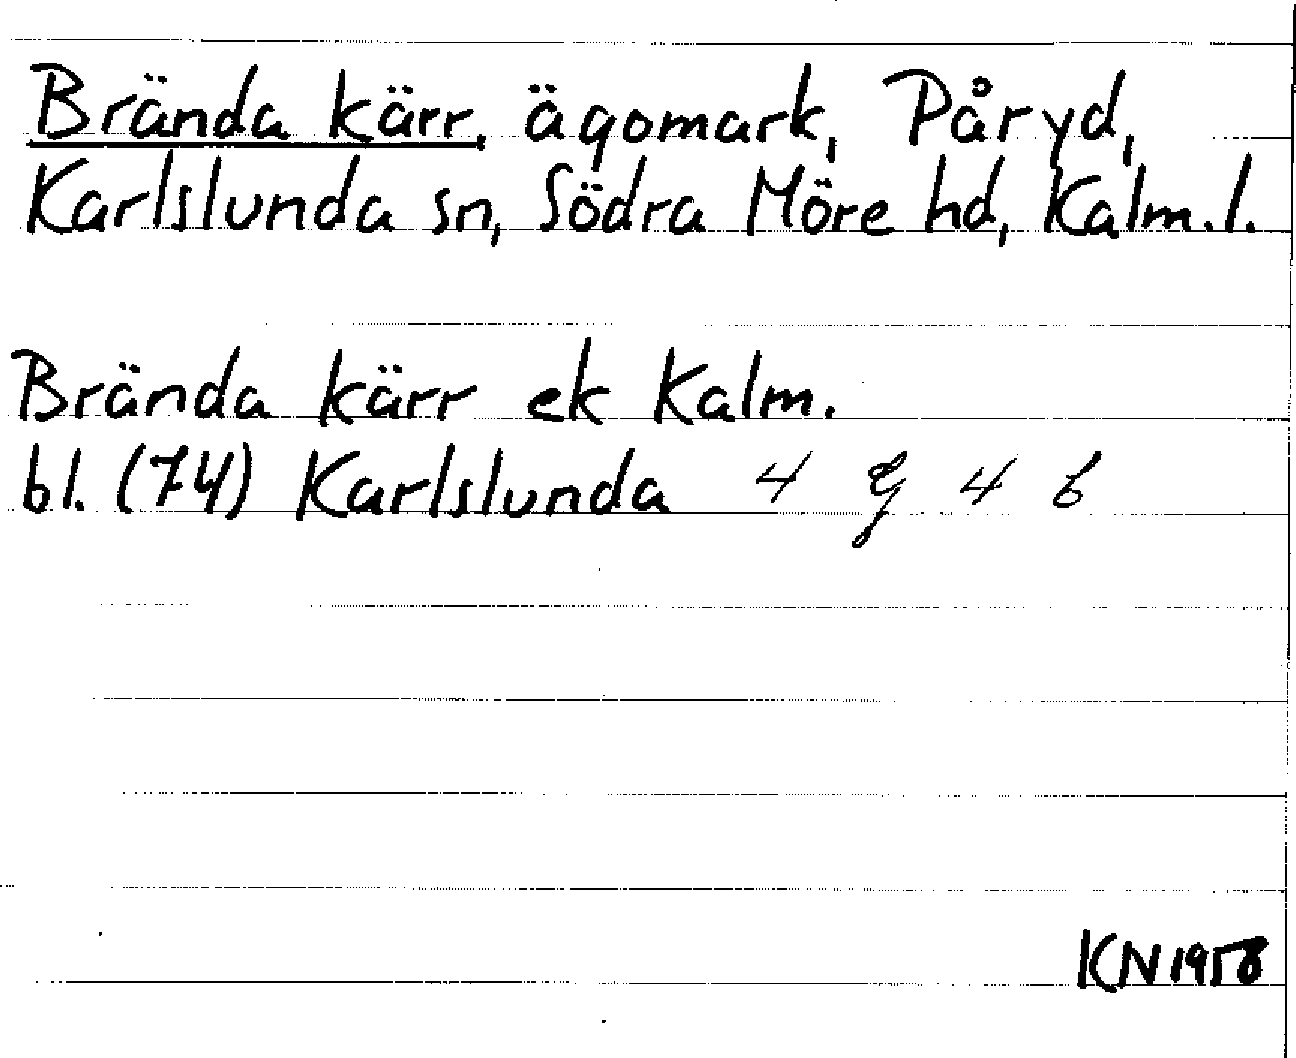 Brända kärr, ägomark, Påryd,
Karlslunda sn, Södra Möre hd, Kalm. l.
Brända kärr ek Kalm.
bl. (74) Karlslunda 4 g 4 b
KN 1958